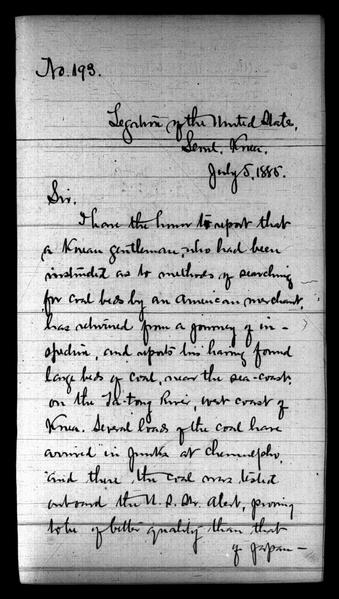 No. 193.
Legation of the United States,
Seoul, Korea.
July 5, 1885.
Sir.
I have the honor to report that
a Korean gentleman, who had been
instructed as to methods of searching
for coal beds by an American merchant,
has returned from a journey of in-
spection, and reports his having found
large beds of coal, near the sea-coast,
on the Ta-tong River, west coast of
Korea. Several loads of the coal have
arrived in junks at Chemulpho,
and there the coal was tested
onboard the U.S.Str. Alert, proving
to be of better quality than that
of Japan—